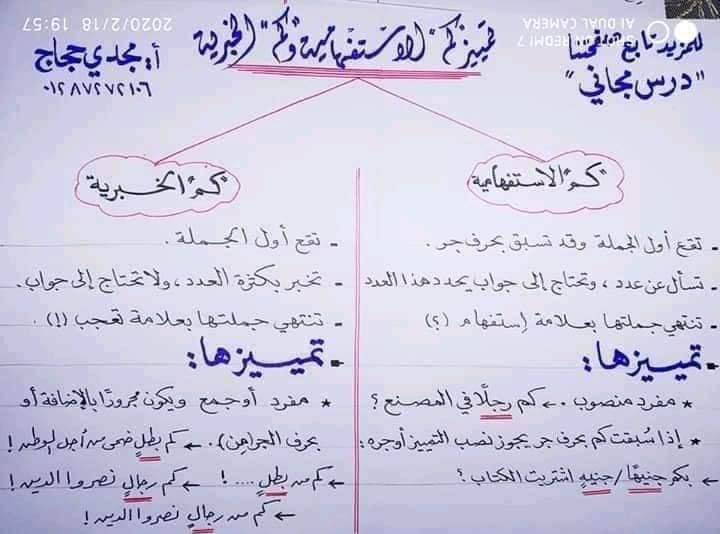 2020/2/18 19:57
SHOT ON REDMI 7
AI DUAL CAMERA
للمزيد تابع صفحتنا
"درس مجاني"
تمييز "كم" الاستفهامية و"كم" الخبرية
أ. مجدي حجاج
٠١٢٨٧٢٧٢١٠٦
"كم" الاستفهامية
- تقع أول الجملة وقد تسبق بحرف جر.
- تسأل عن عدد، وتحتاج إلى جواب يحدد هذا العدد
- تنتهي جملتها بعلامة إستفهام (؟)
- تمييزها:
* مفرد منصوب. ← كم رجلًا في المصنع؟
* إذا سُبقت كم بحرف جر يجوز نصب التمييز أو جره:
← بكم جنيهًا/جنيهٍ اشتريت الكتاب؟
"كم" الخبرية
- تقع أول الجملة.
- تخبر بكثرة العدد، ولا تحتاج إلى جواب.
- تنتهي جملتها بعلامة تعجب (!).
- تمييزها:
* مفرد أو جمع ويكون مجرورًا بالإضافة أو
بحرف الجر (من). ← كم بطلٍ ضحى من أجل الوطن!
← كم من بطلٍ ....! ← كم رجالٍ نصروا الدين!
← كم من رجالٍ نصروا الدين!